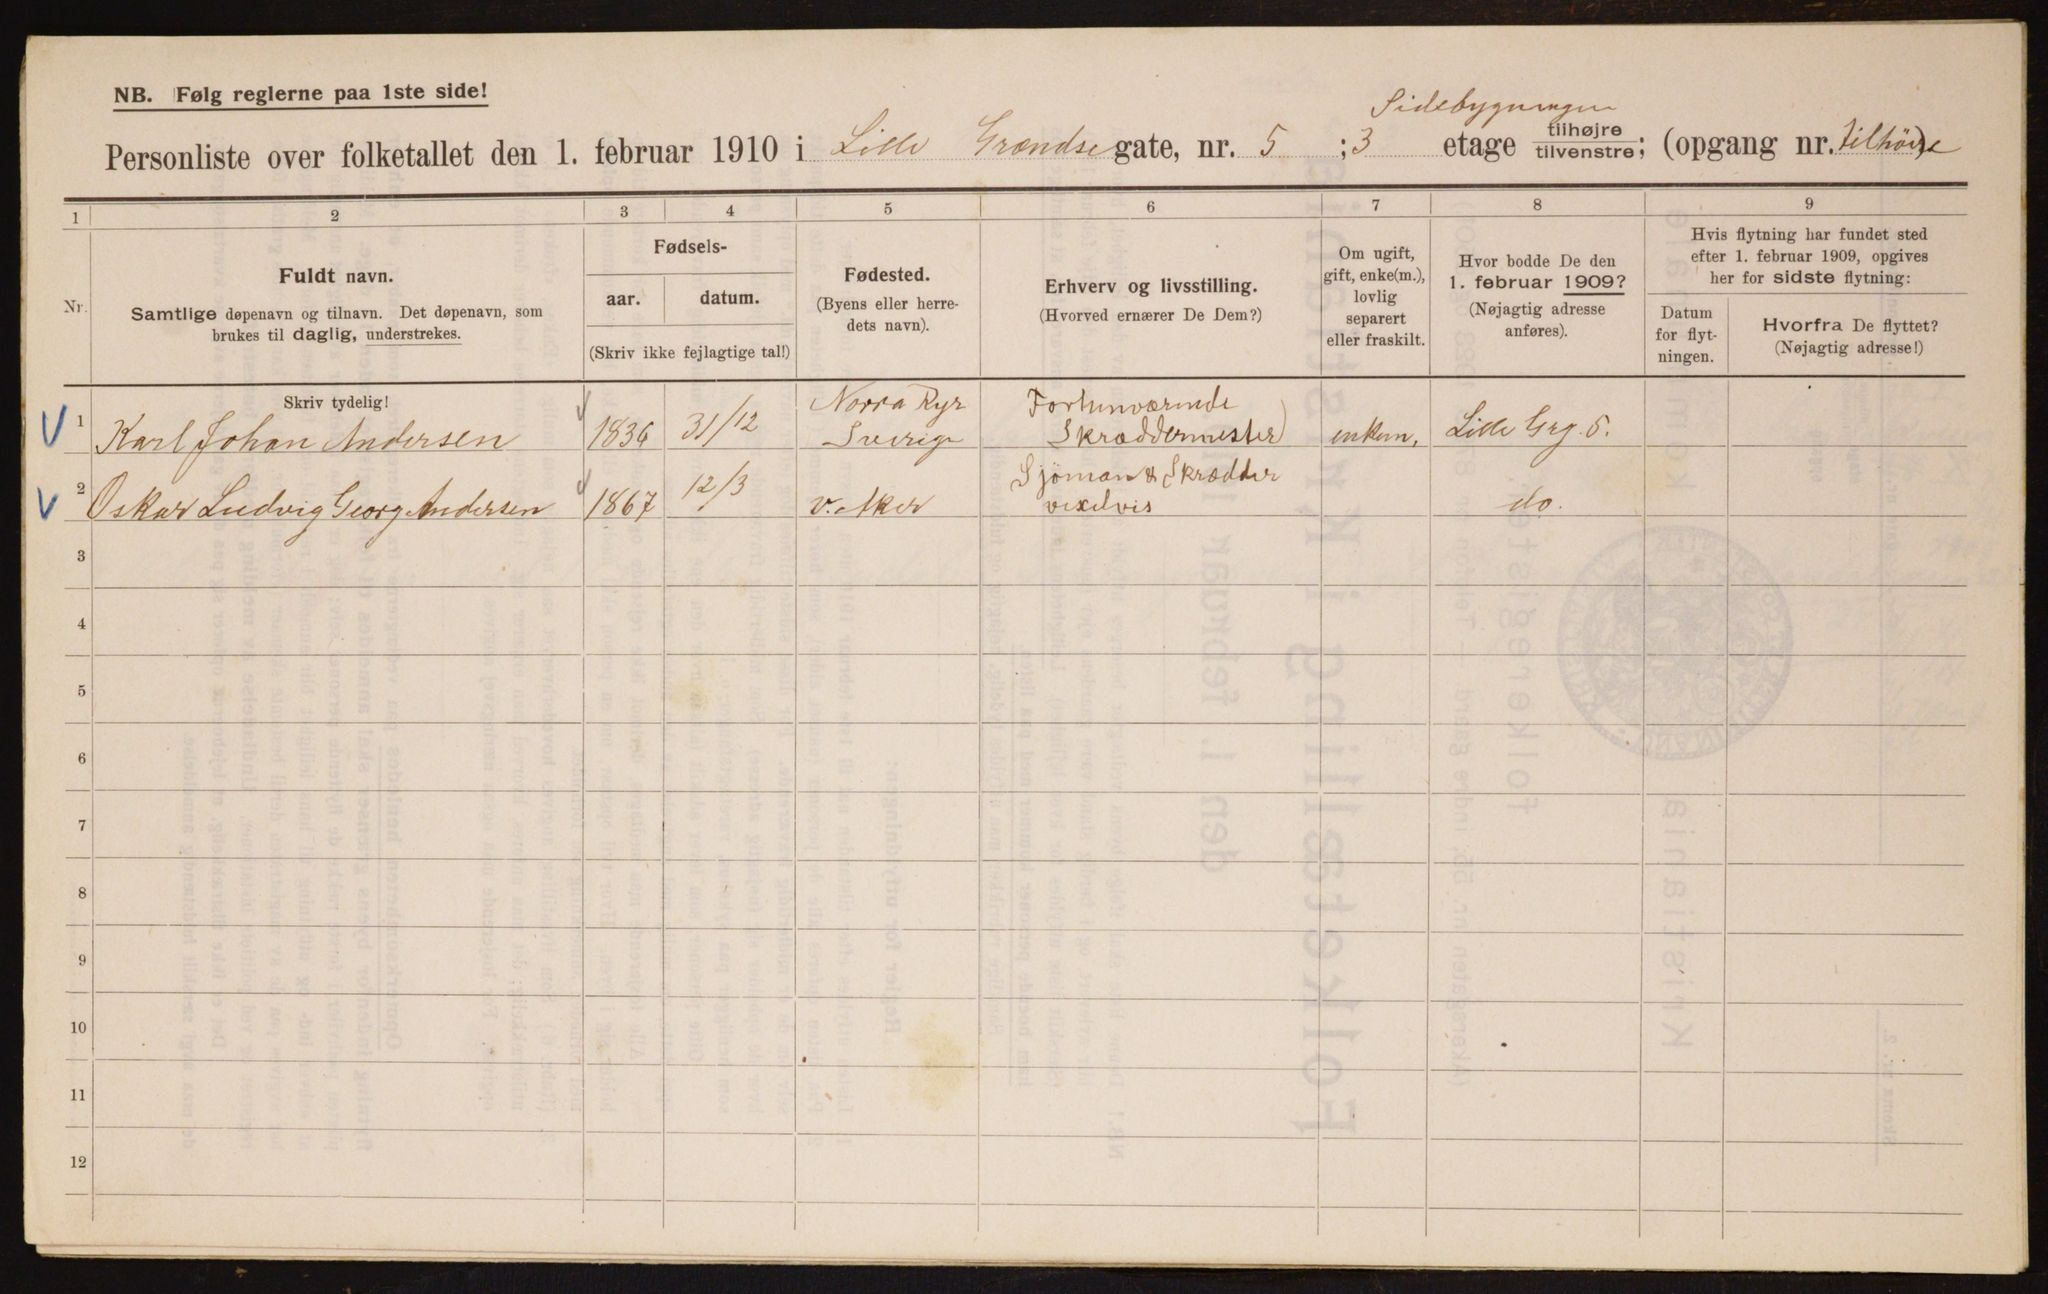 NB. Følg reglerne paa 1ste side!
Sidebygningen
Personliste over folketallet den 1. februar 1910 i Lille Grændse gate, nr. 5 ; 3 etage tilhøjre tilvenstre; (opgang nr. tilhöire)
1 2 3 4 5 6 7 8 9
Nr.
Fuldt navn.
Samtlige døpenavn og tilnavn. Det døpenavn, som
brukes til daglig, understrekes.
Fødsels-
aar. datum.
(Skriv ikke fejlagtige tal!)
Fødested.
(Byens eller herre-
dets navn).
Erhverv og livsstilling.
(Hvorved ernærer De Dem?)
Om ugift,
gift, enke(m.),
lovlig
separert
eller fraskilt.
Hvor bodde De den
1. februar 1909?
(Nøjagtig adresse
anføres).
Hvis flytning har fundet sted
efter 1. februar 1909, opgives
her for sidste flytning:
Datum
for flyt-
ningen.
Hvorfra De flyttet?
(Nøjagtig adresse!)
Skriv tydelig!
1 Karl Johan Andersen 1834 31/12 Norra Ryr Sverige Skræddermester enkem, Lille Grg. 5.
2 Oskar Ludvig Georg Andersen 1867 12/3 v. Aker Sjöman & Skrædder vexelvis do.
3
4
5
6
7
8
9
10
11
12